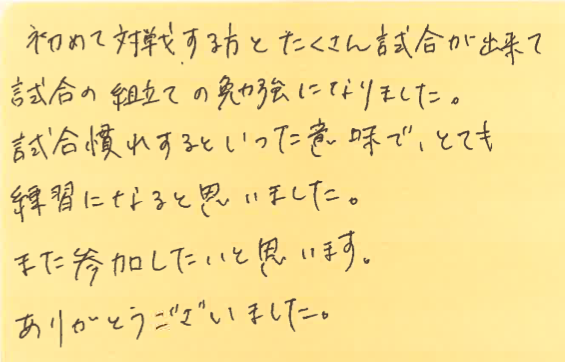 初めて対戦する方とたくさん試合が出来て
試合の組立ての勉強になりました。
試合慣れするといった意味で、とても
練習になると思いました。
また参加したいと思います。
ありがとうございました。